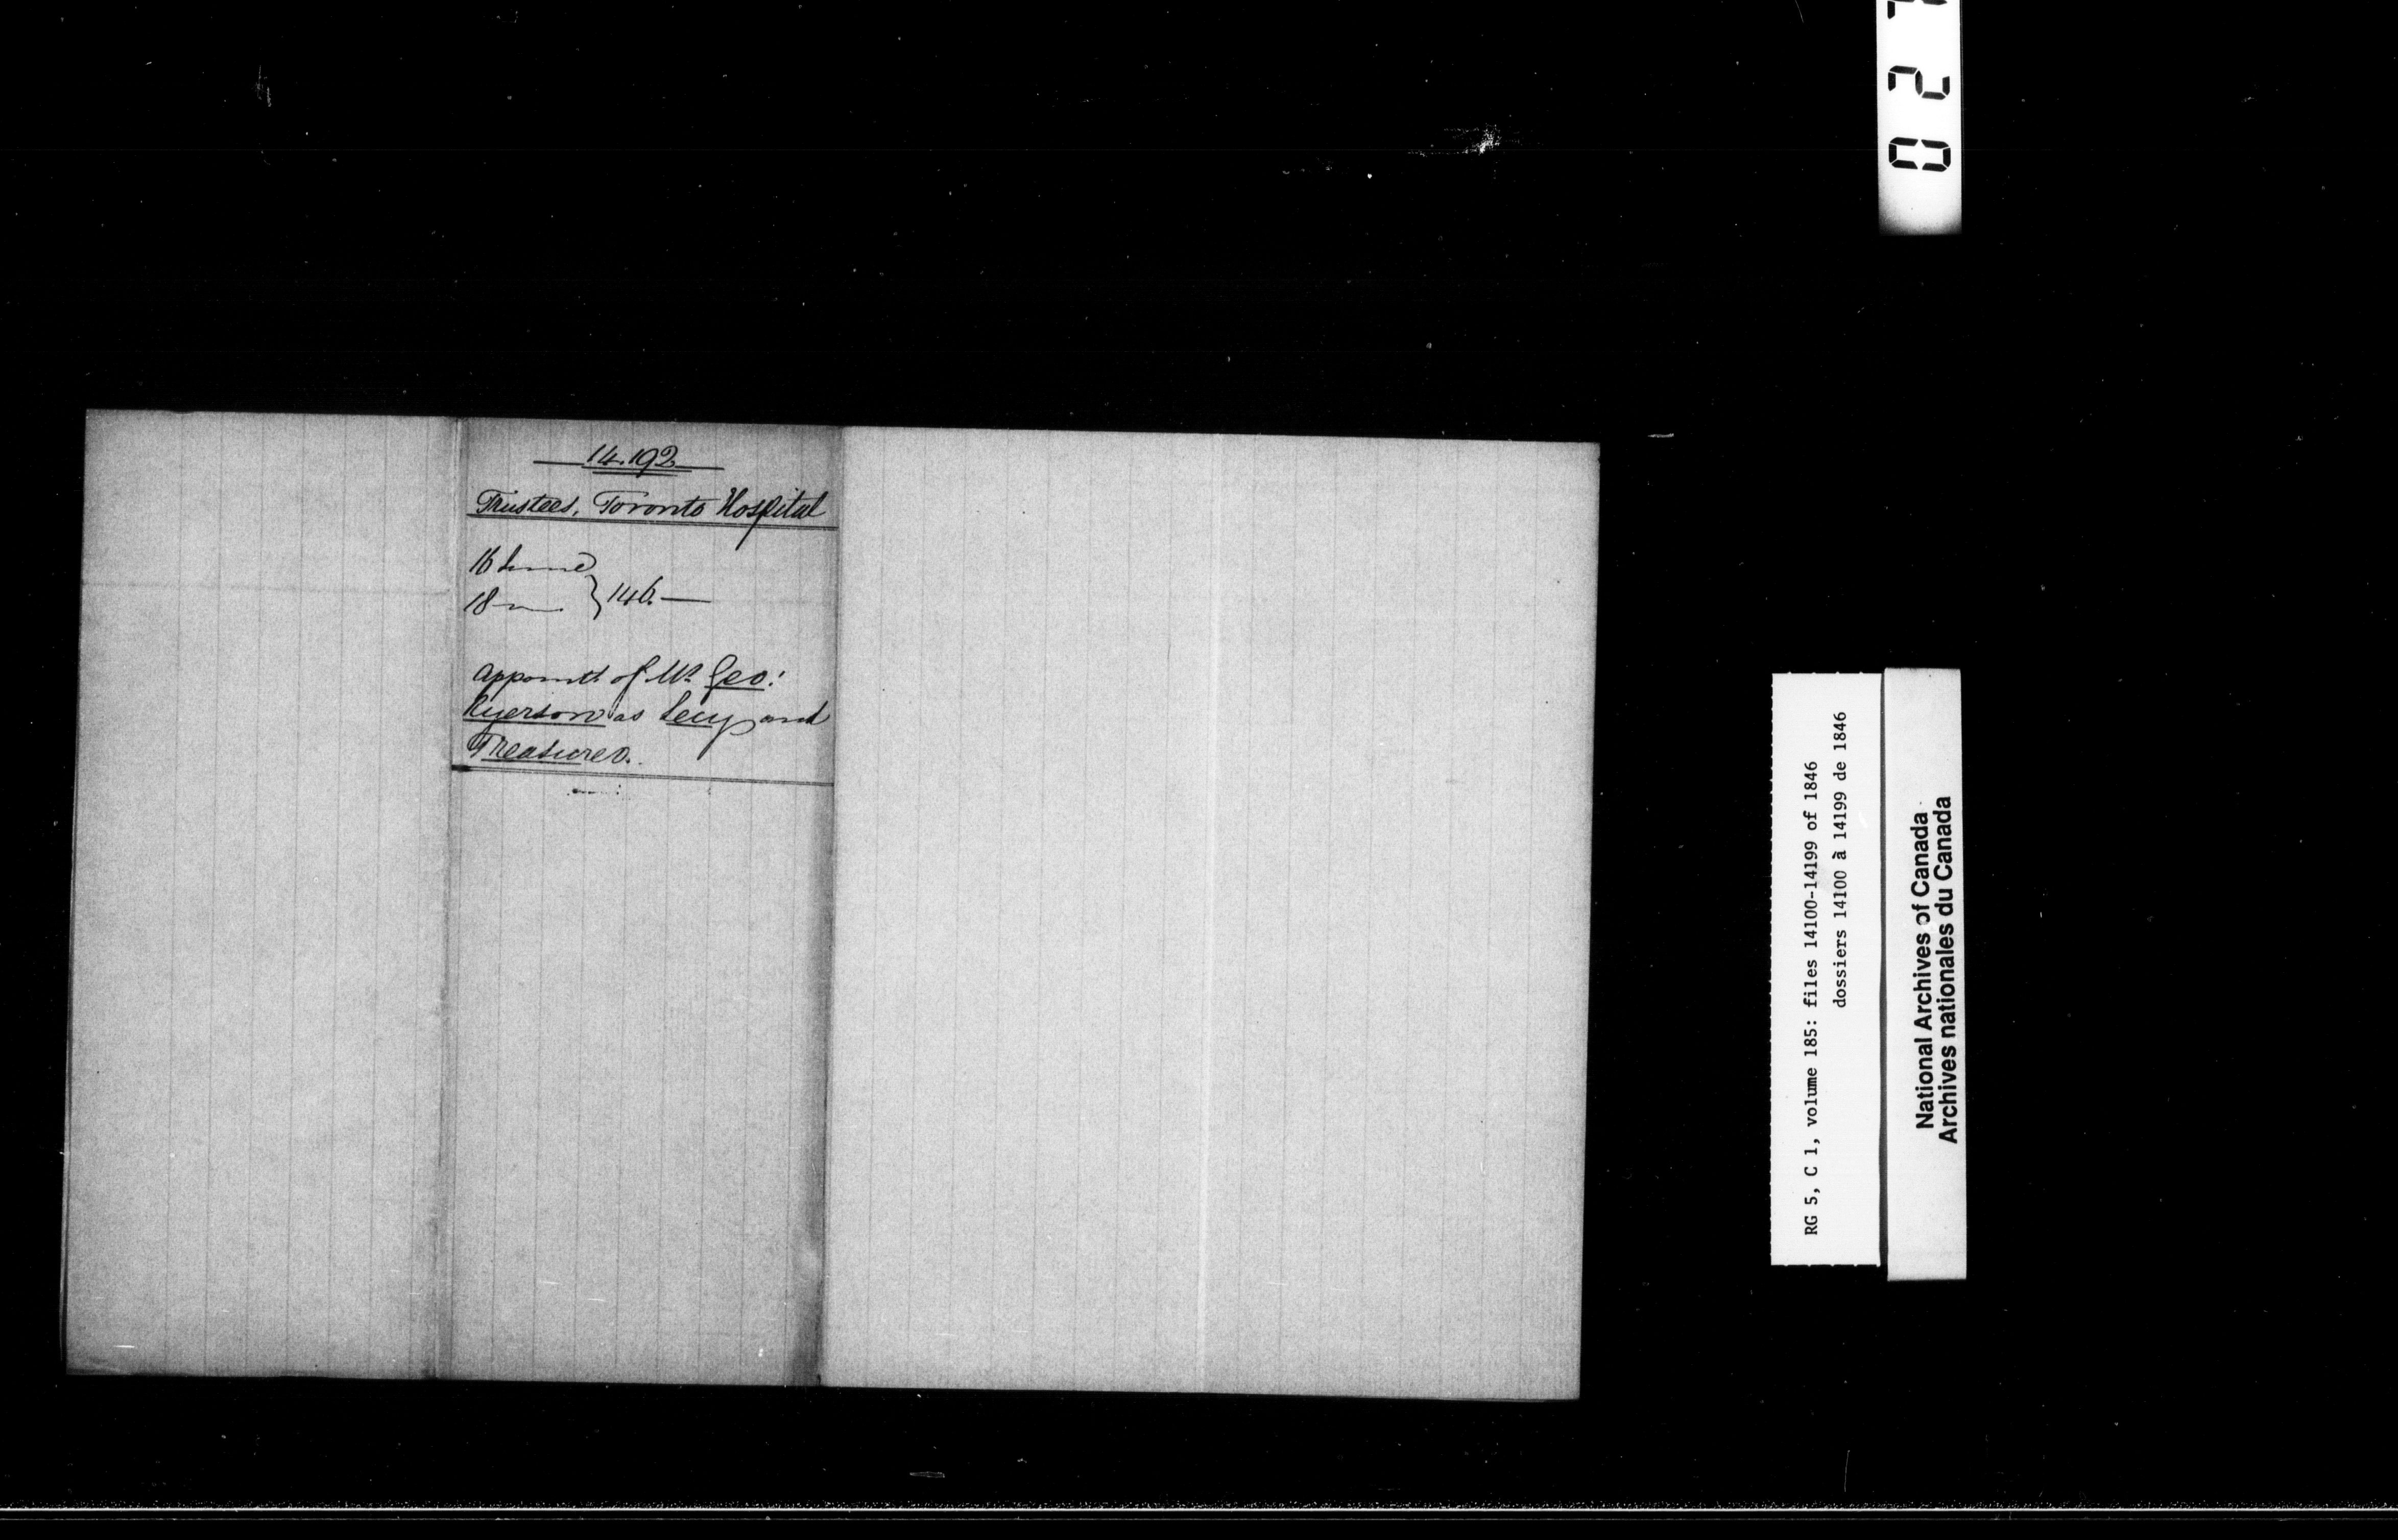 14.192
Trustees, Toronto Hospital
16 June
18 } 146.
Appointt of Mr Geo:
Ryerson as Secy and
Treasurer.
RG 5, C 1, volume 185: files 14100-14199 of 1846
dossiers 14100 à 14199 de 1846
National Archives of Canada
Archives nationales du Canada
0 2